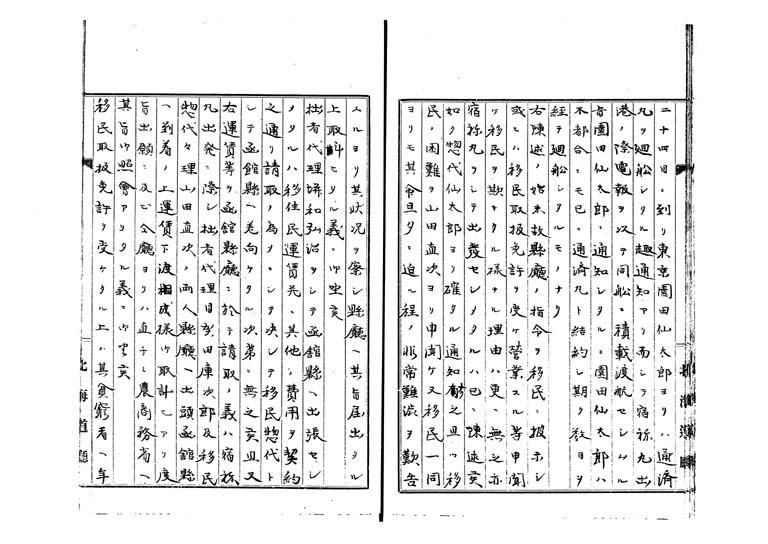 二十四日ニ到リ東京園田仙太郎ヨリハ通済
丸ヲ廻船シタル趣通知アリ而シテ宿祢丸出
港ノ際電報ヲ以テ同船ニ積載渡航セシムル
旨園田仙太郎ニ通知シタルニ園田仙太郎ハ
不都合ニモ已ニ通済丸ト結約シ期ク数日ヲ
経テ廻船シタルモノナリ
右陳述ノ始末故県廳ノ指令ヲ移民ニ披示シ
或ハ移民取扱免許ヲ受ケ営業スル等申聞
ケ移民ヲ欺キタル様ナル理由ハ更ニ無之亦
宿祢丸ヲシテ出発セシメタルハ已ニ陳述
如ク惣代仙太郎ヨリ確タル通知 之且ツ移
民ノ困難ヲ山田直次ヨリ申聞ケ又移民一同
ヨリモ其命旦夕ニ迫ル程ノ非常難渋ヲ歎告
スルヨリ其状況ヲ察シ県廳ヘ其旨届出タル
上取斗ヒタル義ニ御坐候
拙者代理 和弘治ヲシテ函館県ヘ出張セシ
メタルハ移住民運賃先ノ其他ノ費用ヲ契約
之通リ請取ノ為メニシテ決シテ移民惣代ト
シテ函館県ヘ差向ケタル次第ニ無之候且又
右運賃等ヲ函館県廳ニ於テ請取ノ義ハ宿祢
丸出発ニ際シ拙者代理目賀田庫次郎及移民
惣代々理山田直次ノ両人県廳ヘ出頭函館県
ヘ到着ノ上運賃下渡相成様御取計ヒアリ度
旨出願ニ及ビ公廳ヨリハ直チニ農商務省ヘ
其旨御照會アリタル義ニ御坐候
移民取扱免許ヲ受ケタル上ハ其貧窮者ヘ年
北海道廳